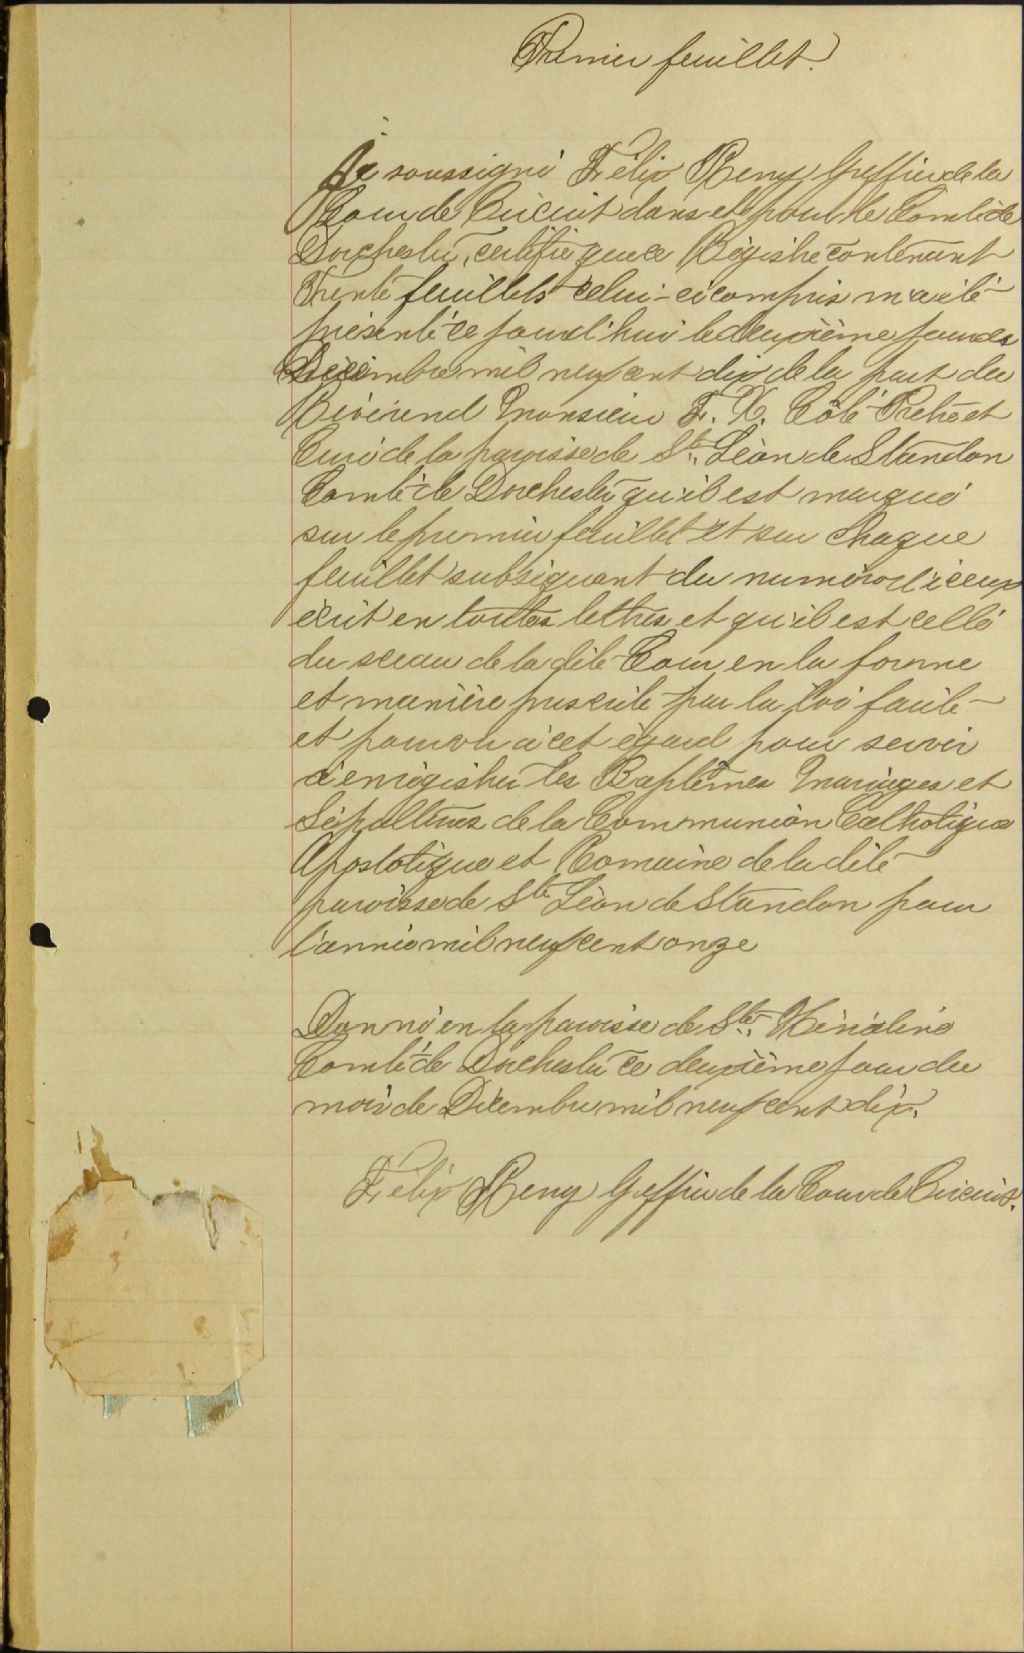 Premier feuillet.
Je soussigné Félix Remy Greffier de la
Cour de Circuit dans et pour le Comté de
Dorchester, certifie que ce Régistre contenant
Trente feuillets celui-ci compris m'a été
présenté ce jourd'hui le deuxième jour de
Décembre mil neuf cent dix de la part du
Révérend Monsieur F. X. Côté Prêtre et
Curé de la paroisse de St. Léon de Standon
Comté de Dorchester qu'il est marqué
sur le premier feuillet et sur chaque
feuillet subséquent du numéro d'iceux
écrit en toutes lettres et qu'il est cellé
du sceau de la dite Cour en la forme
et manière prescrite par la loi faite
et pourvu à cet égard pour servir
à enrégistrer les Baptêmes Mariages et
Sépultures de la Communion Catholique
Apostolique et Romaine de la dite
paroisse de St Léon de Standon pour
l'année mil neuf cent onze
Donné en la paroisse de Ste. Hénédine
Comté de Dorchester ce deuxième jour du
mois de Décembre mil neuf cent dix.
Félix Remy Greffier de la Cour de Circuit.